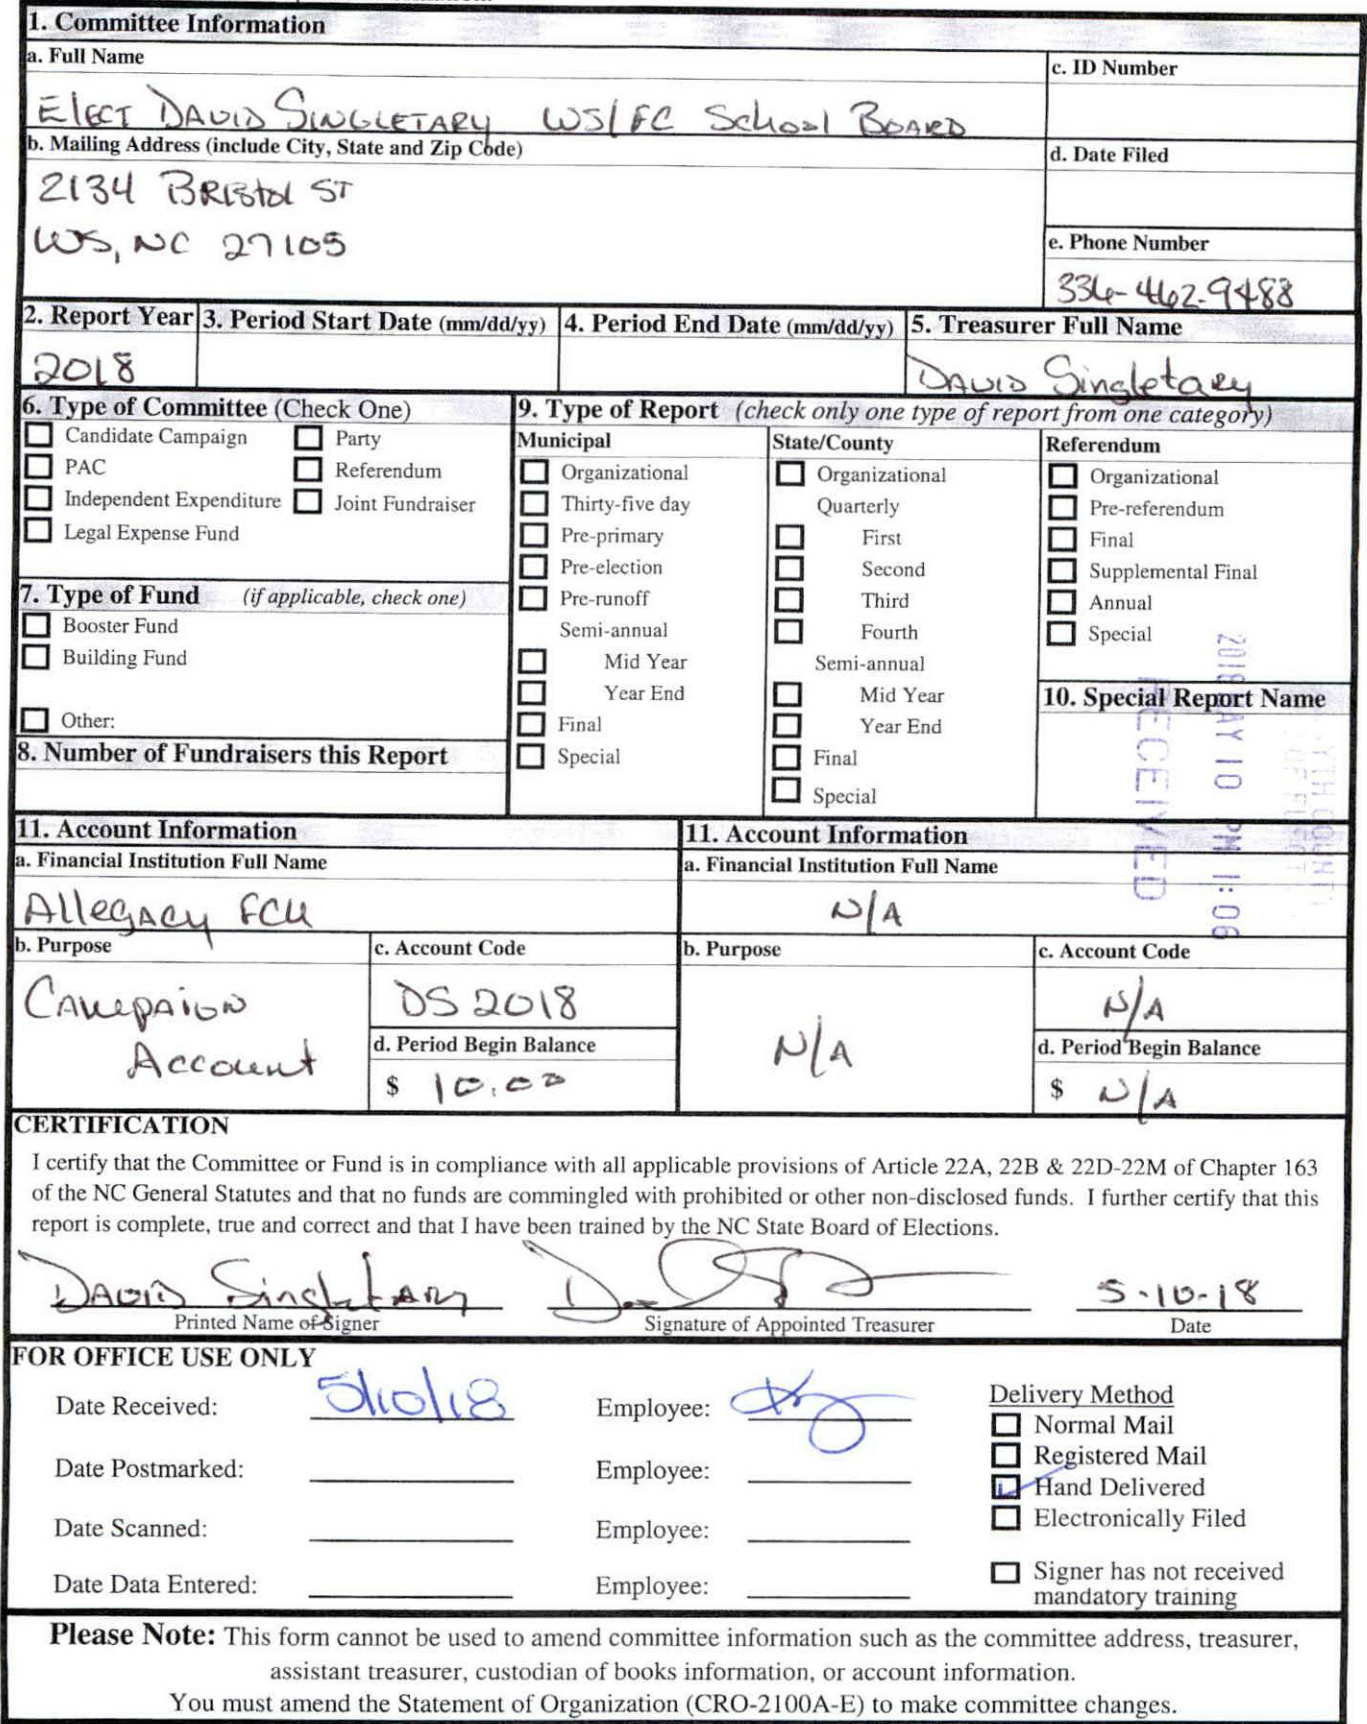 1. Committee Information
a. Full Name
Elect David Singletary WS/FC School Board
c. ID Number
b. Mailing Address (include City, State and Zip Code)
2134 Bristol St
WS, NC 27105
d. Date Filed
e. Phone Number
336-462-9488
2. Report Year
2018
3. Period Start Date (mm/dd/yy)
4. Period End Date (mm/dd/yy)
5. Treasurer Full Name
David Singletary
6. Type of Committee (Check One)
Candidate Campaign
Party
PAC
Referendum
Independent Expenditure
Joint Fundraiser
Legal Expense Fund
7. Type of Fund (if applicable, check one)
Booster Fund
Building Fund
Other:
8. Number of Fundraisers this Report
9. Type of Report (check only one type of report from one category)
Municipal
Organizational
Thirty-five day
Pre-primary
Pre-election
Pre-runoff
Semi-annual
Mid Year
Year End
Final
Special
State/County
Organizational
Quarterly
First
Second
Third
Fourth
Semi-annual
Mid Year
Year End
Final
Special
Referendum
Organizational
Pre-referendum
Final
Supplemental Final
Annual
Special
10. Special Report Name
2018 MAY 10 PM 1:06
RECEIVED
11. Account Information
a. Financial Institution Full Name
Allegacy FCU
b. Purpose
Campaign
Account
c. Account Code
DS2018
d. Period Begin Balance
$ 10.00
11. Account Information
a. Financial Institution Full Name
N/A
b. Purpose
N/A
c. Account Code
N/A
d. Period Begin Balance
$ N/A
CERTIFICATION
I certify that the Committee or Fund is in compliance with all applicable provisions of Article 22A, 22B & 22D-22M of Chapter 163
of the NC General Statutes and that no funds are commingled with prohibited or other non-disclosed funds. I further certify that this
report is complete, true and correct and that I have been trained by the NC State Board of Elections.
David Singletary
5-10-18
Printed Name of Signer
Signature of Appointed Treasurer
Date
FOR OFFICE USE ONLY
Date Received: 5/10/18 Employee:
Date Postmarked: Employee:
Date Scanned: Employee:
Date Data Entered: Employee:
Delivery Method
Normal Mail
Registered Mail
Hand Delivered
Electronically Filed
Signer has not received
mandatory training
Please Note: This form cannot be used to amend committee information such as the committee address, treasurer,
assistant treasurer, custodian of books information, or account information.
You must amend the Statement of Organization (CRO-2100A-E) to make committee changes.